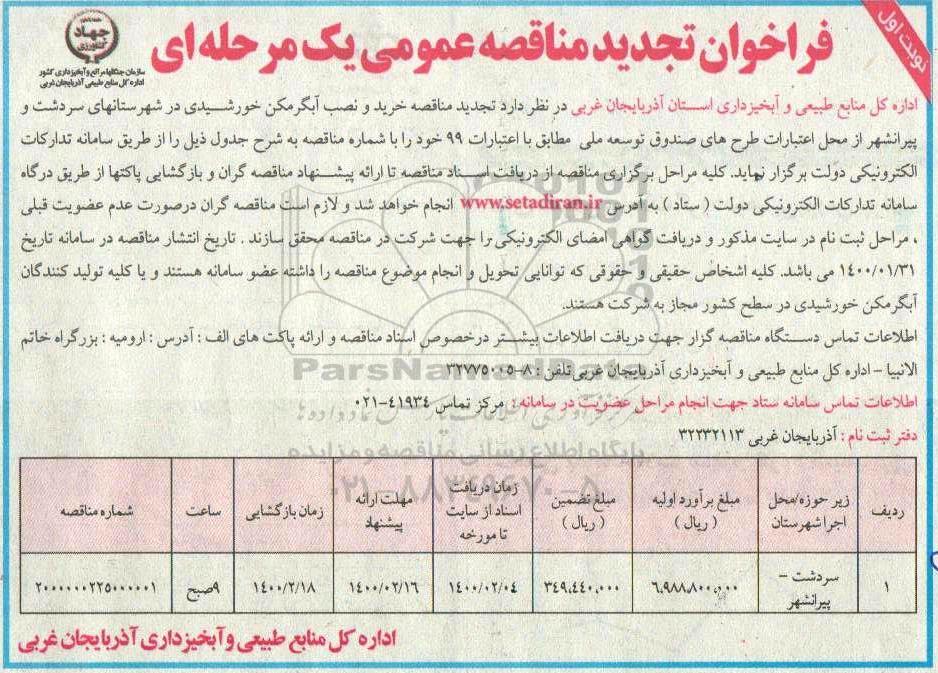 نوبت اول
فراخوان تجدید مناقصه عمومی یک مرحله ای
جهاد
کشاورزی
سازمان جنگلها مراتع و آبخیزداری کشور
اداره کل منابع طبیعی آذربایجان غربی
اداره کل منابع طبیعی و آبخیزداری استان آذربایجان غربی در نظر دارد تجدید مناقصه خرید و نصب آبگرمکن خورشیدی در شهرستانهای سردشت و
پیرانشهر از محل اعتبارات طرح های صندوق توسعه ملی مطابق با اعتبارات ۹۹ خود را با شماره مناقصه به شرح جدول ذیل را از طریق سامانه تدارکات
الکترونیکی دولت برگزار نماید. کلیه مراحل برگزاری مناقصه از دریافت اسناد مناقصه تا ارائه پیشنهاد مناقصه گران و بازگشایی پاکتها از طریق درگاه
سامانه تدارکات الکترونیکی دولت ( ستاد ) به آدرس www.setadiran.ir انجام خواهد شد و لازم است مناقصه گران درصورت عدم عضویت قبلی
، مراحل ثبت نام در سایت مذکور و دریافت گواهی امضای الکترونیکی را جهت شرکت در مناقصه محقق سازند . تاریخ انتشار مناقصه در سامانه تاریخ
۱۴۰۰/۰۱/۳۱ می باشد. کلیه اشخاص حقیقی و حقوقی که توانایی تحویل و انجام موضوع مناقصه را داشته عضو سامانه هستند و یا کلیه تولید کنندگان
آبگرمکن خورشیدی در سطح کشور مجاز به شرکت هستند.
اطلاعات تماس دستگاه مناقصه گزار جهت دریافت اطلاعات بیشتر درخصوص اسناد مناقصه و ارائه پاکت های الف : آدرس : ارومیه : بزرگراه خاتم
الانبیا - اداره کل منابع طبیعی و آبخیزداری آذربایجان غربی تلفن : ۸-۳۲۷۷۵۰۰۵
اطلاعات تماس سامانه ستاد جهت انجام مراحل عضویت در سامانه : مرکز تماس ۴۱۹۳۴-۰۲۱
دفتر ثبت نام : آذربایجان غربی ۳۲۲۳۲۱۱۳
ParsNamadData
پایگاه اطلاع رسانی مناقصه و مزایده
۰۲۱-۸۸۳۴۹۶۷۰-۵
ردیف | زیر حوزه/محل اجرا شهرستان | مبلغ برآورد اولیه ( ریال ) | مبلغ تضمین ( ریال ) | زمان دریافت اسناد از سایت تا مورخه | مهلت ارائه پیشنهاد | زمان بازگشایی | ساعت | شماره مناقصه
۱ | سردشت - پیرانشهر | ۶،۹۸۸،۸۰۰،۰۰۰ | ۳۴۹،۴۴۰،۰۰۰ | ۱۴۰۰/۰۲/۰۴ | ۱۴۰۰/۰۲/۱۶ | ۱۴۰۰/۲/۱۸ | ۹صبح | ۲۰۰۰۰۰۰۲۲۵۰۰۰۰۰۱
اداره کل منابع طبیعی و آبخیزداری آذربایجان غربی